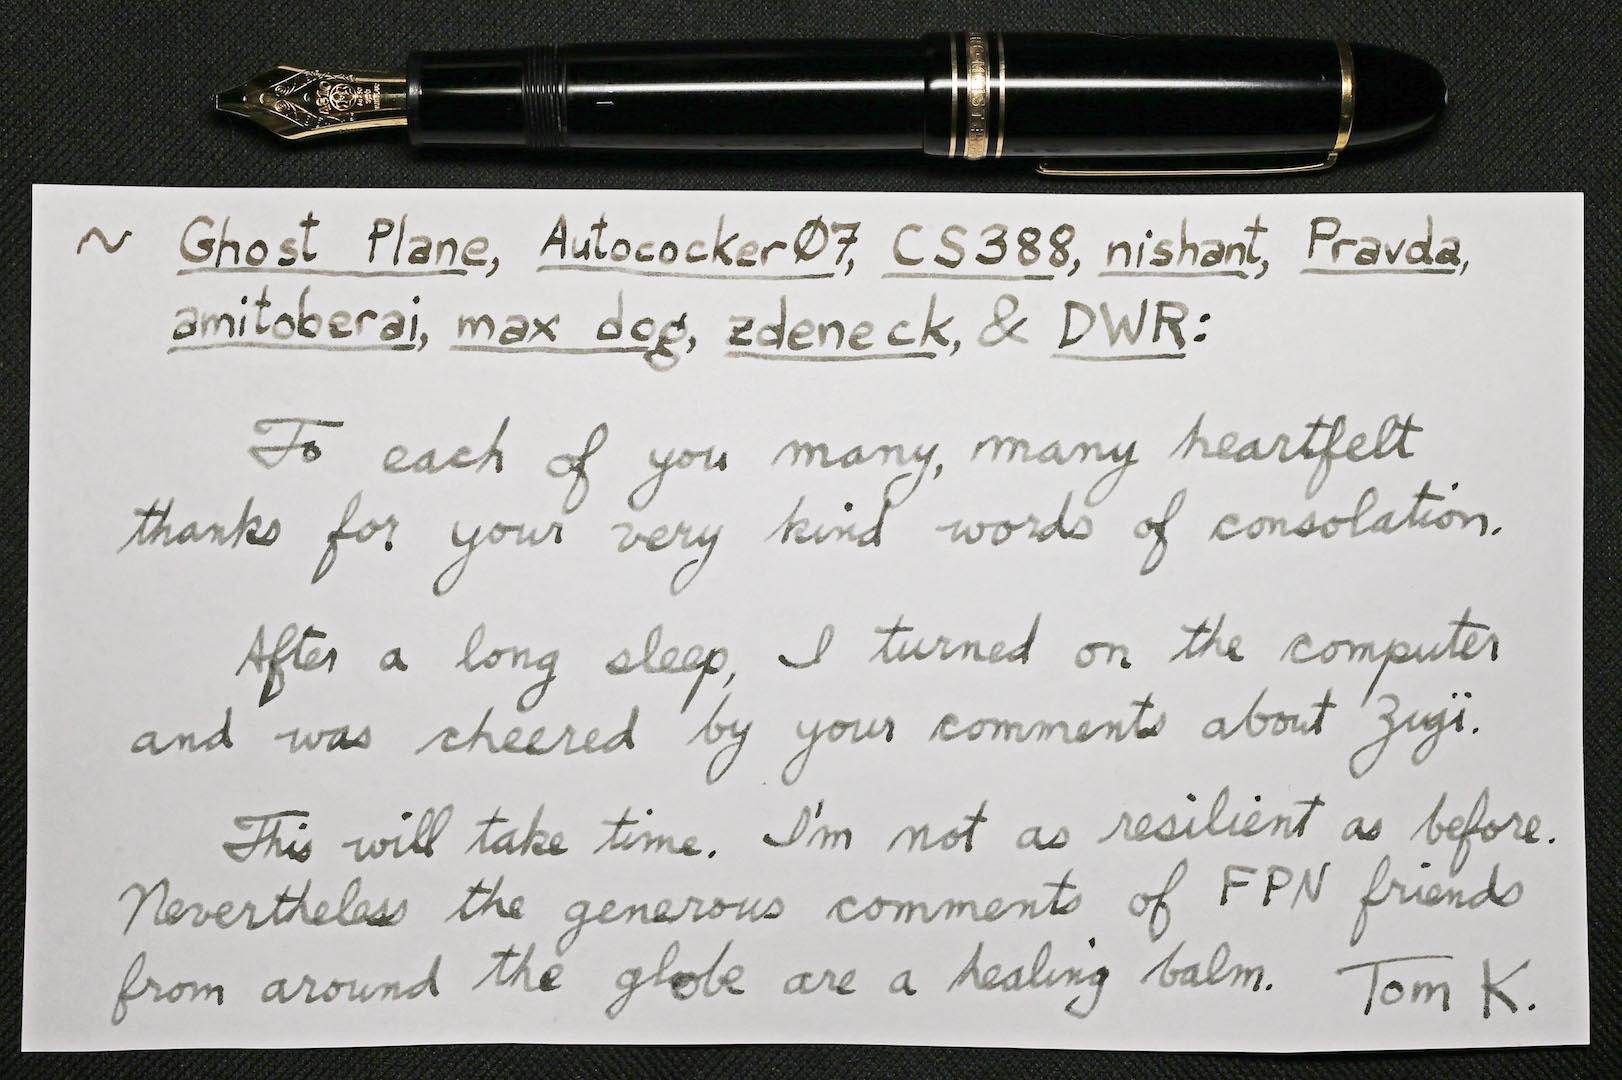 ~ Ghost Plane, Autococker07, CS388, nishant, Pravda,
amitoberai, max dog, zdeneck, & DWR:
To each of you many, many heartfelt
thanks for your very kind words of consolation.
After a long sleep, I turned on the computer
and was cheered by your comments about Zuji.
This will take time. I'm not as resilient as before.
Nevertheless the generous comments of FPN friends
from around the globe are a healing balm. Tom K.